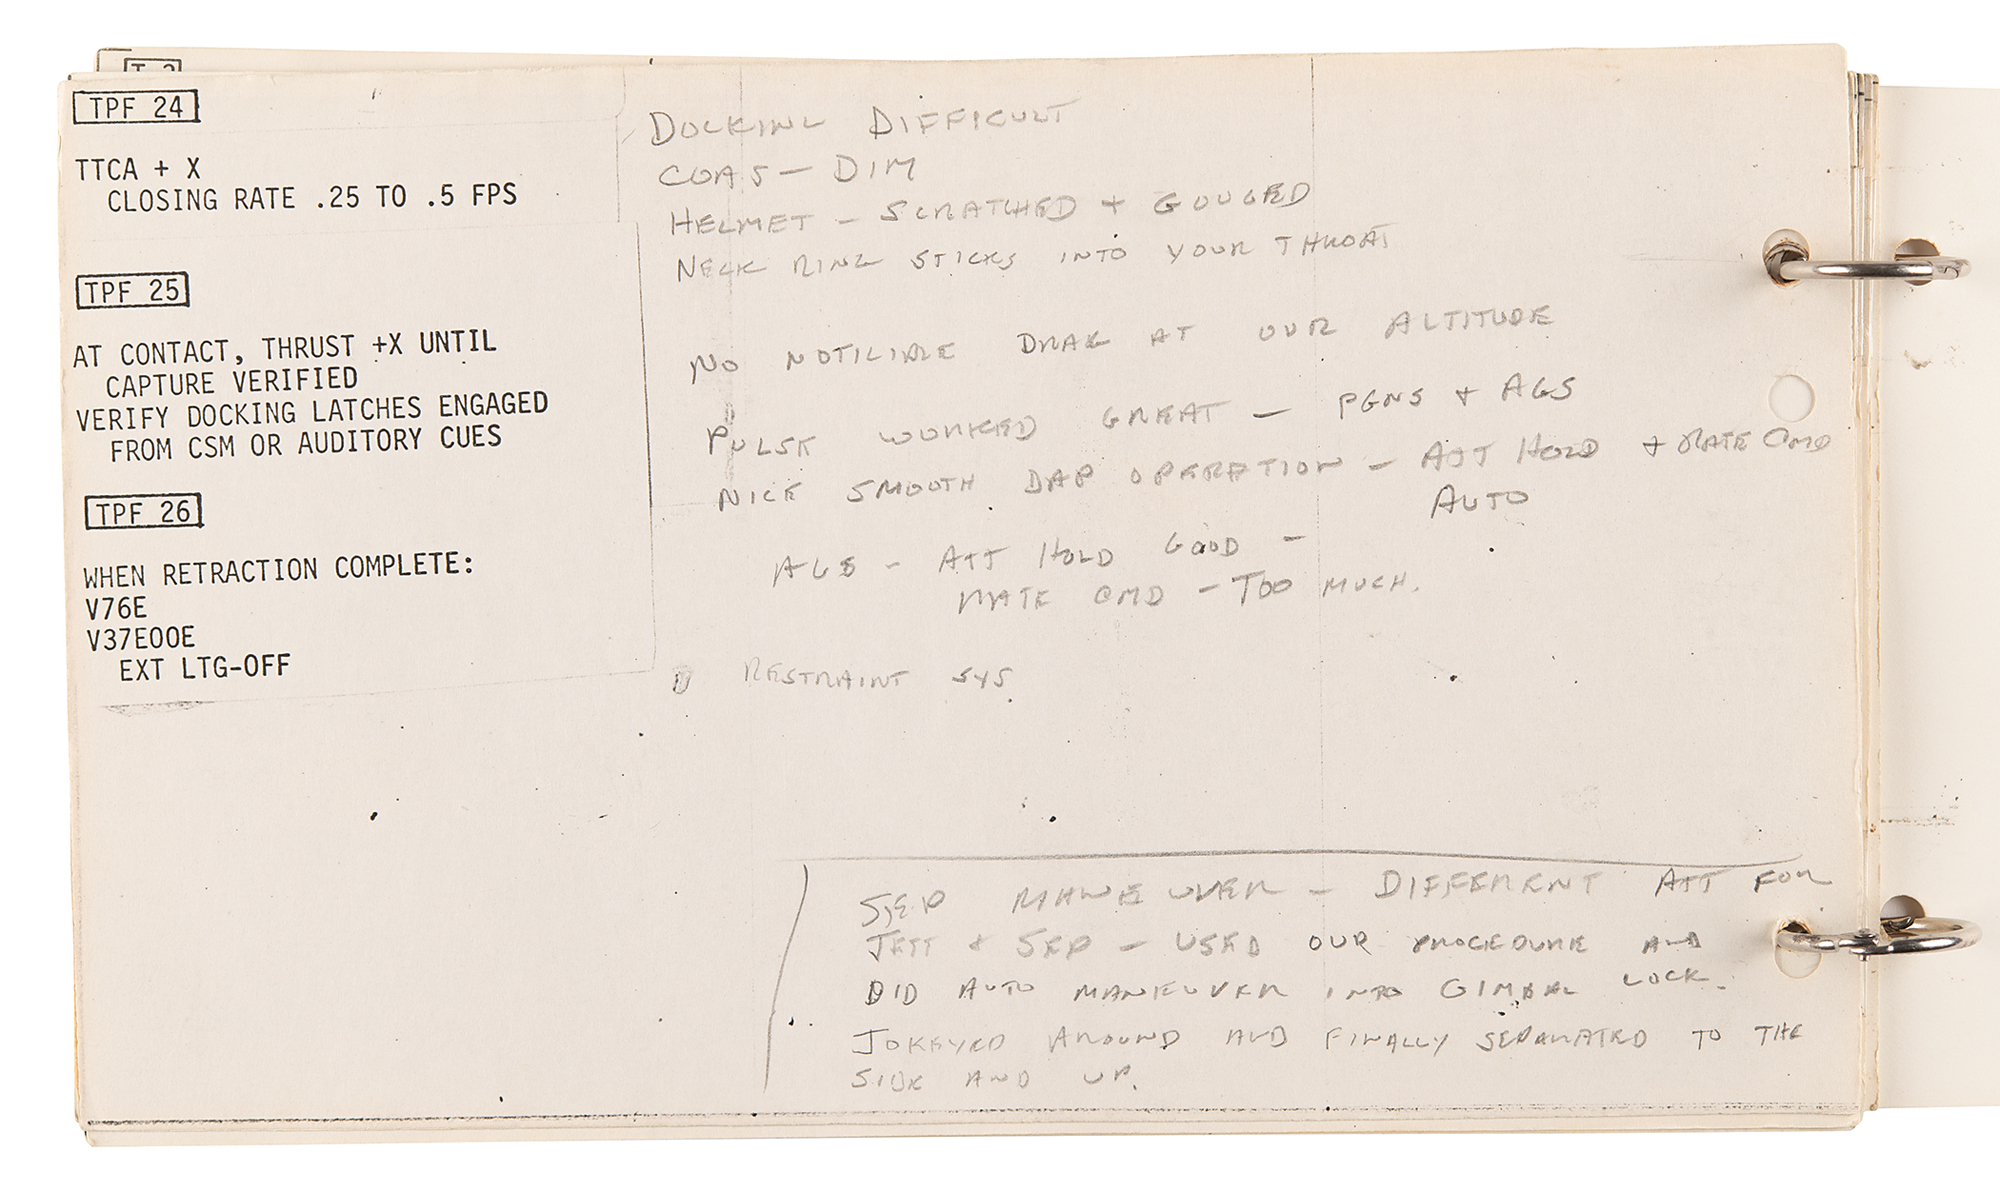 TPF 24
TTCA + X
CLOSING RATE .25 TO .5 FPS
TPF 25
AT CONTACT, THRUST +X UNTIL
CAPTURE VERIFIED
VERIFY DOCKING LATCHES ENGAGED
FROM CSM OR AUDITORY CUES
TPF 26
WHEN RETRACTION COMPLETE:
V76E
V37E00E
EXT LTG-OFF
DOCKING DIFFICULT
COAS - DIM
HELMET - SCRATCHED + GOUGED
NECK RING STICKS INTO YOUR THROAT
NO NOTICIBLE DRAG AT OUR ALTITUDE
PULSE WORKED GREAT - PGNS + AGS
NICE SMOOTH DAP OPERATION - ATT HOLD + RATE CMD
AUTO
AGS - ATT HOLD GOOD -
RATE CMD - TOO MUCH.
RESTRAINT SYS.
SEP MANEUVER - DIFFERENT ATT FOR
JETT + SEP - USED OUR PROCEDURE AND
DID AUTO MANEUVER INTO GIMBAL LOCK.
JOKEYED AROUND AND FINALLY SEPARATED TO THE
SIDE AND UP.